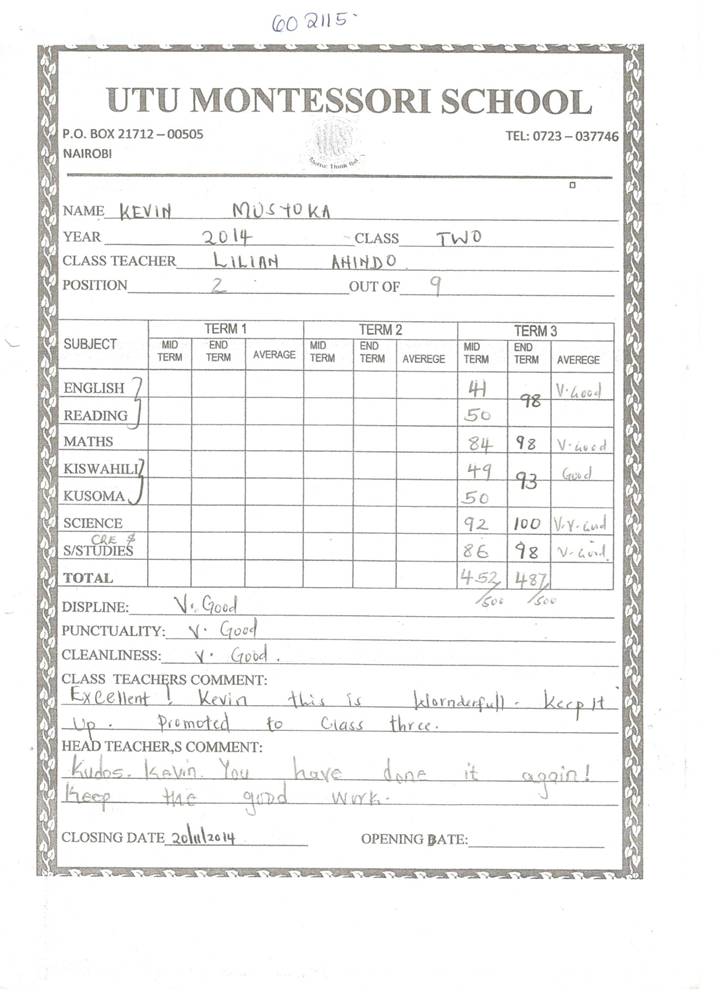 602115
UTU MONTESSORI SCHOOL
P.O. BOX 21712 – 00505 TEL: 0723 – 037746
NAIROBI
NAME KEVIN
YEAR 2014 CLASS TWO
CLASS TEACHER LILIAN AHINDO
POSITION 2 OUT OF 9
SUBJECT TERM 1 TERM 2 TERM 3
MID TERM END TERM AVERAGE MID TERM END TERM AVEREGE MID TERM END TERM AVEREGE
ENGLISH 41 98 V. Good
READING 50
MATHS 84 98 V. Good
KISWAHILI 49 93 Good
KUSOMA 50
SCIENCE 92 100 V.V. Good
CRE &
S/STUDIES 86 98 V. Good.
TOTAL 452/500 487/500
DISPLINE: V. Good
PUNCTUALITY: V. Good
CLEANLINESS: V. Good.
CLASS TEACHERS COMMENT:
Excellent! Kevin this is Wornderfull. Keep It
Up. Promoted to Class three.
HEAD TEACHER,S COMMENT:
Kudos. Kevin. You have done it again!
Keep the good work.
CLOSING DATE 20/11/2014 OPENING DATE: